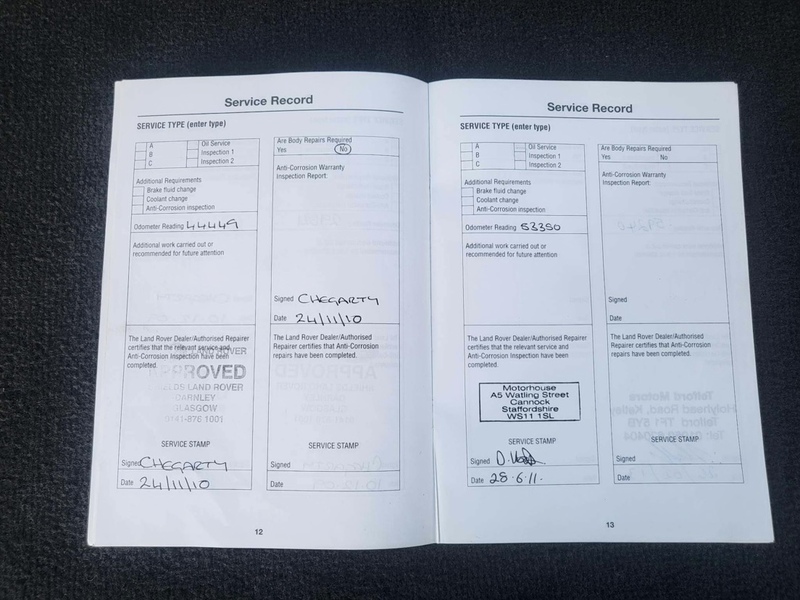 Service Record
SERVICE TYPE (enter type)
A
B
C
Oil Service
Inspection 1
Inspection 2
Additional Requirements
Brake fluid change
Coolant change
Anti-Corrosion inspection
Odometer Reading 44449
Additional work carried out or
recommended for future attention
The Land Rover Dealer/Authorised Repairer
certifies that the relevant service and
Anti-Corrosion Inspection have been
completed.
LAND ROVER
LAND ROVER
GLASGOW
0141-876 1001
SERVICE STAMP
Signed CHEGARTY
Date 24/11/10
Are Body Repairs Required
Yes No
Anti-Corrosion Warranty
Inspection Report:
Signed CHEGARTY
Date 24/11/10
The Land Rover Dealer/Authorised
Repairer certifies that Anti-Corrosion
repairs have been completed.
SERVICE STAMP
Signed
Date
12
Service Record
SERVICE TYPE (enter type)
A
B
C
Oil Service
Inspection 1
Inspection 2
Additional Requirements
Brake fluid change
Coolant change
Anti-Corrosion inspection
Odometer Reading 53350
Additional work carried out or
recommended for future attention
The Land Rover Dealer/Authorised Repairer
certifies that the relevant service and
Anti-Corrosion Inspection have been
completed.
Motorhouse
A5 Watling Street
Cannock
Staffordshire
WS11 1SL
SERVICE STAMP
Signed
Date 28.6.11.
Are Body Repairs Required
Yes No
Anti-Corrosion Warranty
Inspection Report:
Signed
Date
The Land Rover Dealer/Authorised
Repairer certifies that Anti-Corrosion
repairs have been completed.
SERVICE STAMP
Signed
Date
13